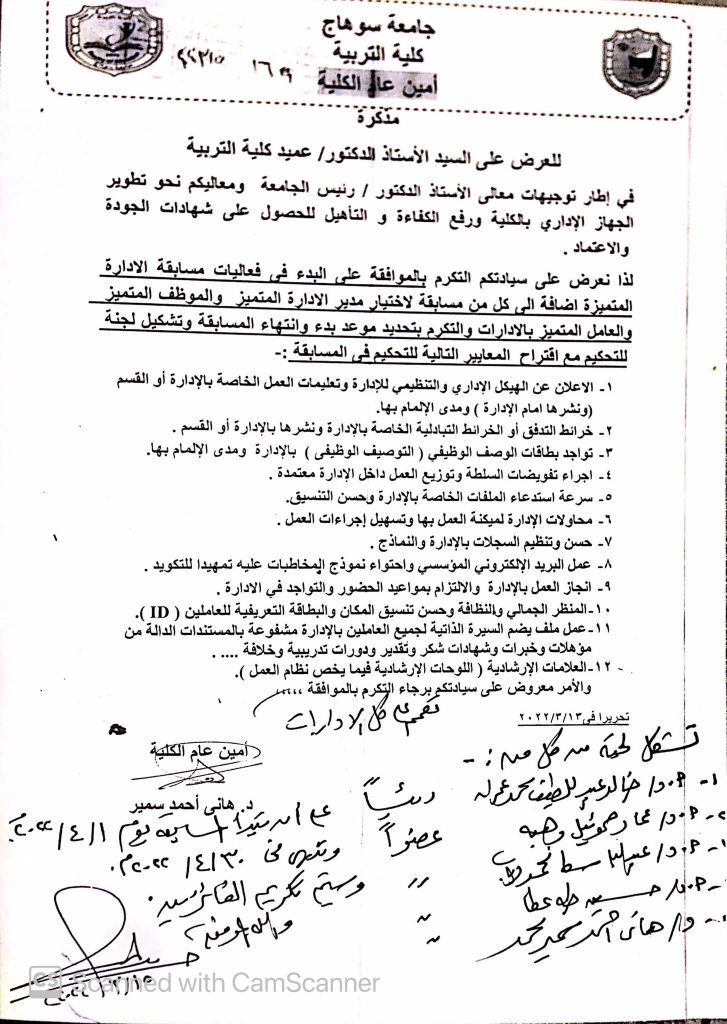 جامعة سوهاج
كلية التربية
أمين عام الكلية
مذكرة
للعرض على السيد الأستاذ الدكتور/ عميد كلية التربية
في إطار توجيهات معالى الأستاذ الدكتور / رئيس الجامعة ومعاليكم نحو تطوير
الجهاز الإداري بالكلية ورفع الكفاءة و التأهيل للحصول على شهادات الجودة
والاعتماد .
لذا نعرض على سيادتكم التكرم بالموافقة على البدء فى فعاليات مسابقة الادارة
المتميزة اضافة الى كل من مسابقة لاختيار مدير الادارة المتميز والموظف المتميز
والعامل المتميز بالادارات والتكرم بتحديد موعد بدء وانتهاء المسابقة وتشكيل لجنة
للتحكيم مع اقتراح المعايير التالية للتحكيم فى المسابقة :-
١- الاعلان عن الهيكل الإداري والتنظيمي للإدارة وتعليمات العمل الخاصة بالإدارة أو القسم
(ونشرها امام الإدارة ) ومدى الإلمام بها.
٢- خرائط التدفق أو الخرائط التبادلية الخاصة بالإدارة ونشرها بالإدارة أو القسم .
٣- تواجد بطاقات الوصف الوظيفي ( التوصيف الوظيفى ) بالإدارة ومدى الإلمام بها.
٤- اجراء تفويضات السلطة وتوزيع العمل داخل الإدارة معتمدة .
٥- سرعة استدعاء الملفات الخاصة بالإدارة وحسن التنسيق.
٦- محاولات الإدارة لميكنة العمل بها وتسهيل إجراءات العمل .
٧- حسن وتنظيم السجلات بالإدارة والنماذج .
٨- عمل البريد الإلكتروني المؤسسي واحتواء نموذج المخاطبات عليه تمهيدا للتكويد .
٩- انجاز العمل بالإدارة والالتزام بمواعيد الحضور والتواجد في الادارة .
١٠- المنظر الجمالي والنظافة وحسن تنسيق المكان والبطاقة التعريفية للعاملين ( ID ).
١١- عمل ملف يضم السيرة الذاتية لجميع العاملين بالإدارة مشفوعة بالمستندات الدالة من
مؤهلات وخبرات وشهادات شكر وتقدير ودورات تدريبية وخلافة .... .
١٢- العلامات الإرشادية ( اللوحات الإرشادية فيما يخص نظام العمل ).
والأمر معروض على سيادتكم برجاء التكرم بالموافقة ،،،،،،
تحريرا فى ٢٠٢٢/٣/١٣
كل الادارات
أمين عام الكلية
د. هانى أحمد سمير
تشكل لجنة من كل من :-
١- أ.د/ خالد عبد اللطيف محمد عمران رئيساً
أ.د/ عماد صموئيل وهبه عضواً
أ.د/ عبد الباسط محمد
أ.د/ حسين طه عطا "
د/ هانى احمد سمير محمد "
على أن تبدأ المسابقة يوم ٢٠٢٢/٤/١
وتنتهى فى ٢٠٢٢/٤/٣٠م
وسيتم تكريم الفائزين
CS Scanned with CamScanner